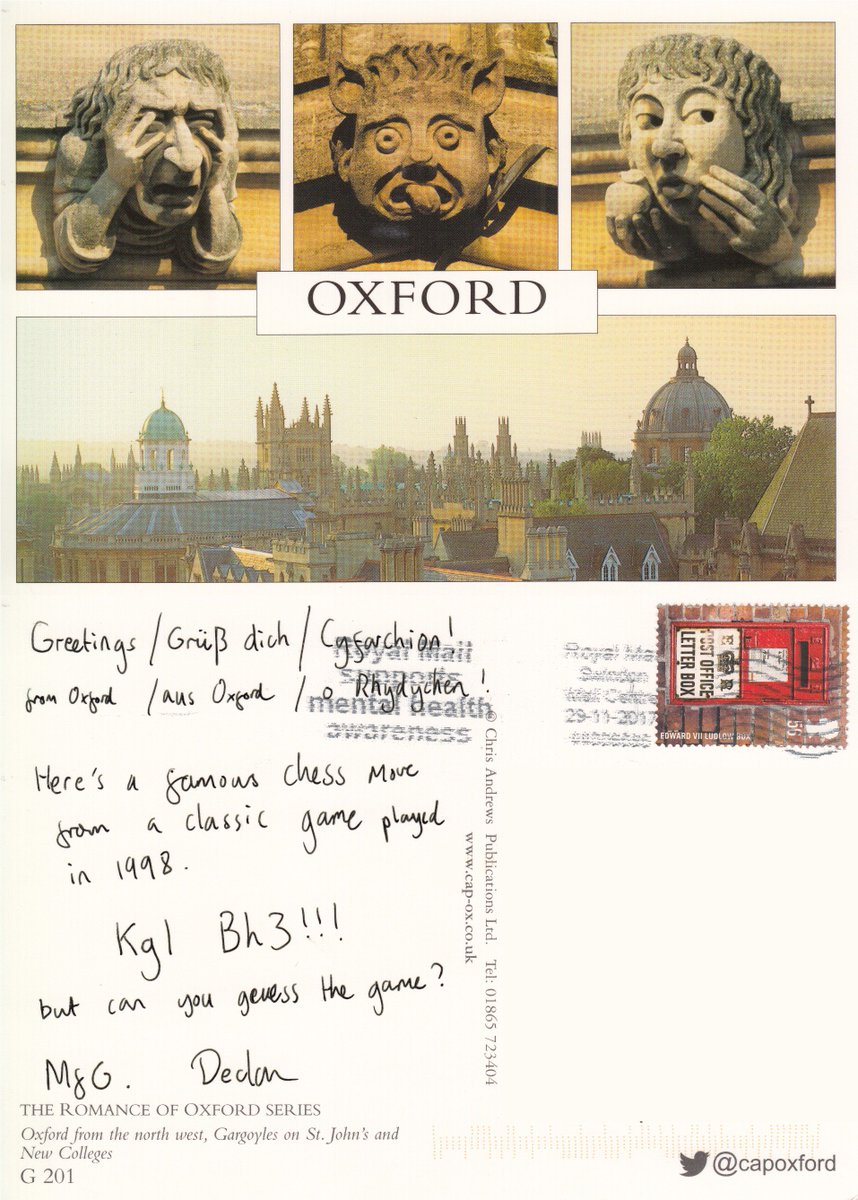 OXFORD
Greetings / Grüß dich / Cyfarchion!
from Oxford / aus Oxford / o Rhydychen!
Royal Mail
supports
mental health
awareness
Royal Mail
29-11-2017
POST OFFICE
LETTER BOX
E R
EDWARD VII LUDLOW BOX
Here's a famous chess move
from a classic game played
in 1998.
Kg1 Bh3!!!
but can you geuess the game?
MfG. Declan
© Chris Andrews Publications Ltd. Tel: 01865 723404
www.cap-ox.co.uk
THE ROMANCE OF OXFORD SERIES
Oxford from the north west, Gargoyles on St. John's and
New Colleges
G 201
@capoxford